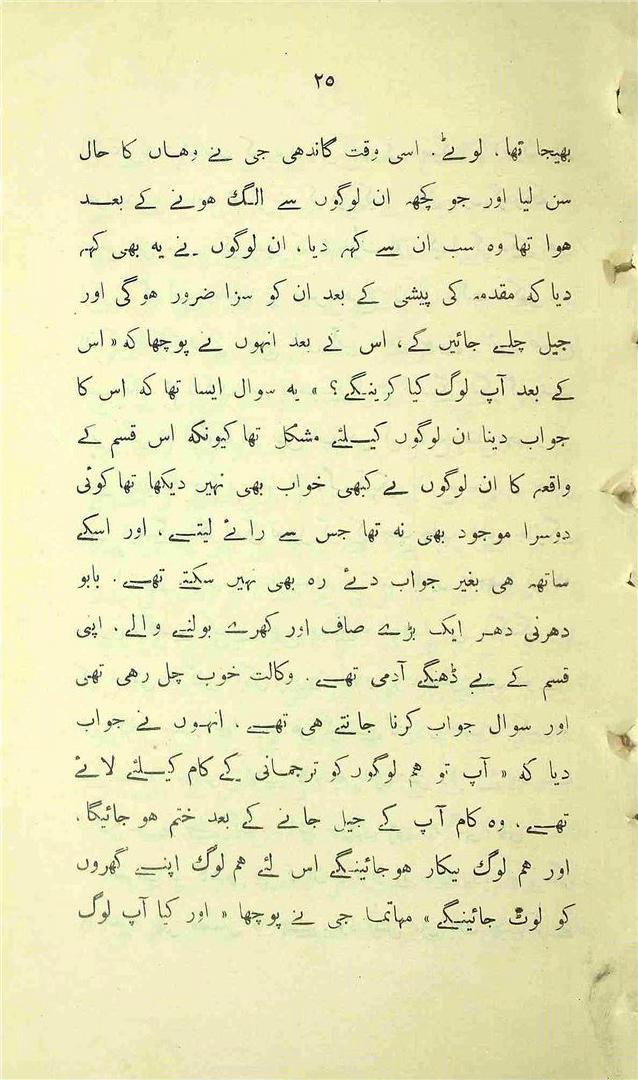 ۲۵
بھیجا تھا، لوٹے۔ اسی وقت گاندھی جی نے وھاں کا حال
سن لیا اور جو کچھہ ان لوگوں سے الگ ھونے کے بعد
ھوا تھا وہ سب ان سے کہہ دیا، ان لوگوں نے یہ بھی کہہ
دیا کہ مقدمہ کی پیشی کے بعد ان کو سزا ضرور ھوگی اور
جیل چلے جائیں گے، اس کے بعد انہوں نے پوچھا کہ « اس
کے بعد آپ لوگ کیا کرینگے؟ » یہ سوال ایسا تھا کہ اس کا
جواب دینا ان لوگوں کیلئے مشکل تھا کیونکہ اس قسم کے
واقعہ کا ان لوگوں نے کبھی خواب بھی نہیں دیکھا تھا کوئی
دوسرا موجود بھی نہ تھا جس سے رائے لیتے، اور اسکے
ساتھہ ھی بغیر جواب دئے رہ بھی نہیں سکتے تھے۔ بابو
دھرنی دھر ایک بڑے صاف اور کھرے بولنے والے۔ اپنی
قسم کے بے ڈھنگے آدمی تھے۔ وکالت خوب چل رھی تھی
اور سوال جواب کرنا جانتے ھی تھے۔ انہوں نے جواب
دیا کہ « آپ تو ھم لوگوں کو ترجمانی کے کام کیلئے لائے
تھے۔ وہ کام آپ کے جیل جانے کے بعد ختم ھو جائیگا۔
اور ھم لوگ بیکار ھوجائینگے اس لئے ھم لوگ اپنے گھروں
کو لوٹ جائینگے » مہاتما جی نے پوچھا « اور کیا آپ لوگ